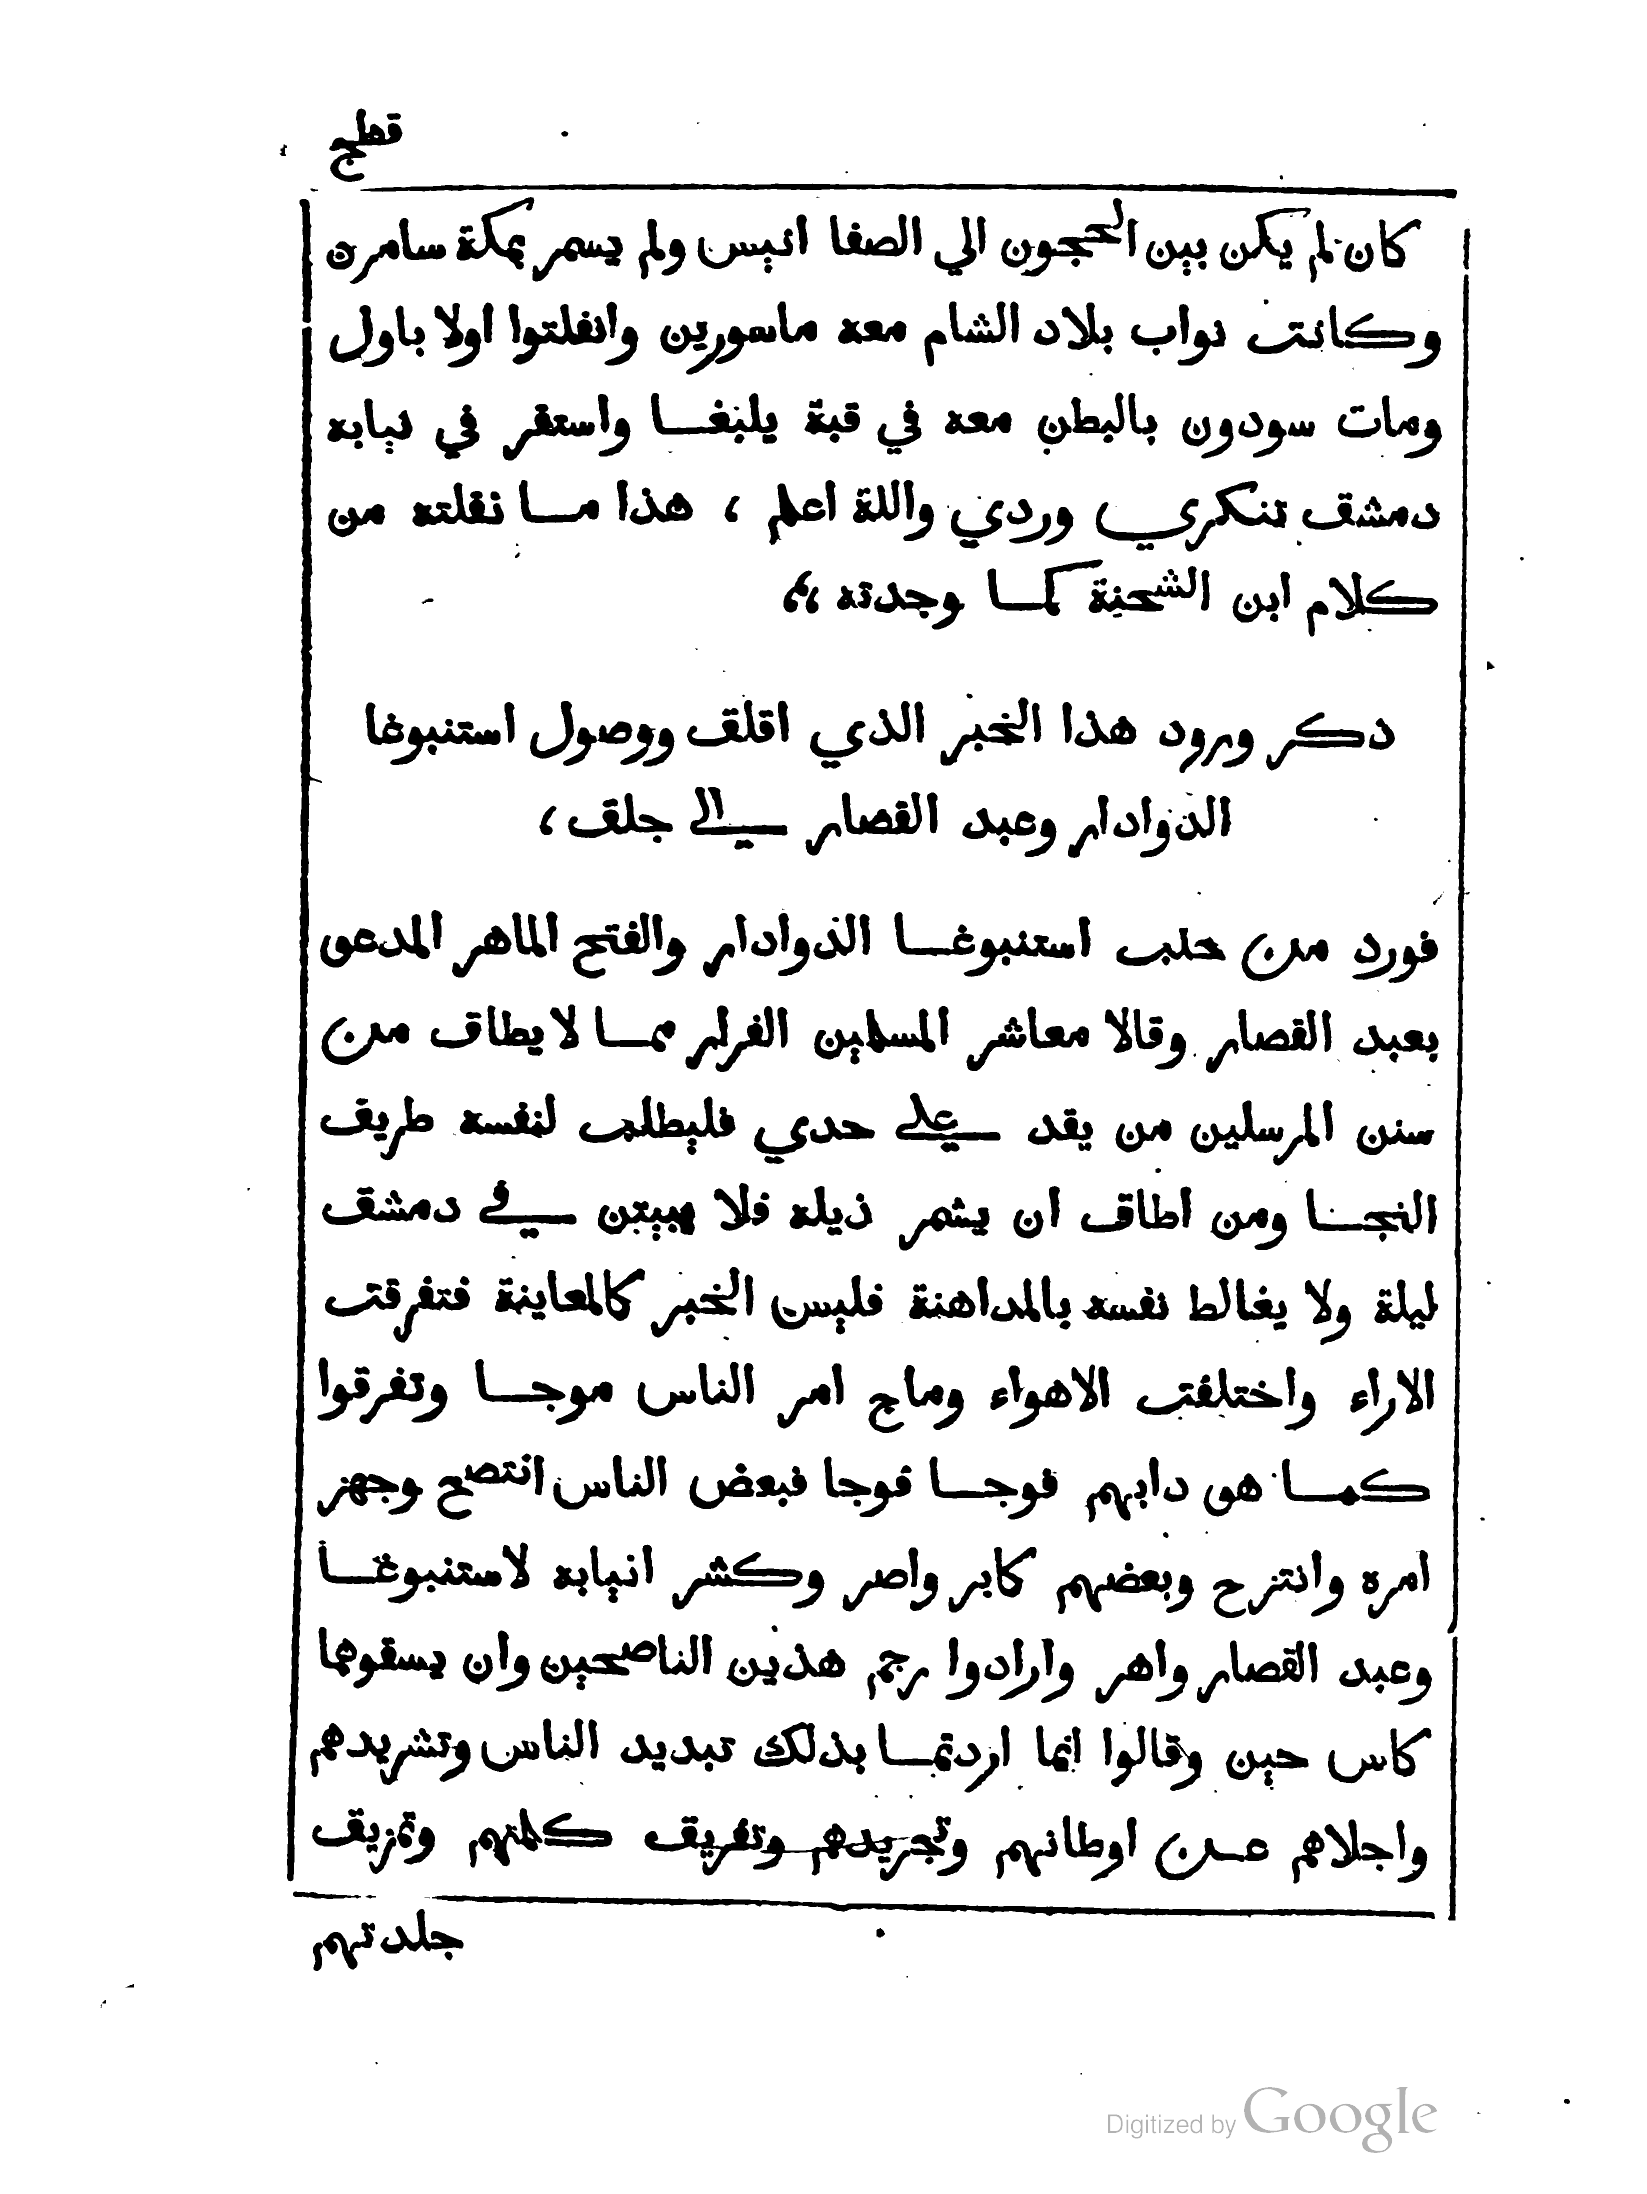 قهلج
كان لم يكن بين الحجون الي الصفا انيس ولم يسمر بمكة سامرن
وكانت نواب بلاد الشام معه ماسورين وانفلتوا اولا باول
ومات سودون بالبطن معه في قبة يلبغا واستقر في نيابه
دمشق تنكري وردي واللة اعلم ، هذا ما نقلته من
كلام ابن الشحنة كما وجدته ،،،
ذكر ورود هذا الخبر الذي اقلق ووصول استنبوغا
الدوادار وعبد القصار الي جلق ،
فورد من حلب استنبوغا الدوادار والفتح الماهر المدعو
بعبد القصار وقالا معاشر المسلمين الفرار مما لا يطاق من
سنن المرسلين من يقد علي حدي فليطلب لنفسه طريق
النجا ومن اطاق ان يشمر ذيله فلا يبيتن في دمشق
ليلة ولا يغالط نفسه بالمداهنة فليس الخبر كالمعاينة فتفرقت
الاراء واختلفت الاهواء وماج امر الناس موجا وتفرقوا
كما هو دابهم فوجا فوجا فبعض الناس انتصح وجهز
امره وانتزح وبعضهم كابر واصر وكشر انيابه لاستنبوغا
وعبد القصار واهر وارادوا رجم هذين الناصحين وان يسقوهما
كاس حين وقالوا انما اردتما بذلك تبديد الناس وتشريدهم
واجلاهم عن اوطانهم وتجريدهم وتفريق كلمتهم وتمزيق
جلدتهم
Digitized by Google